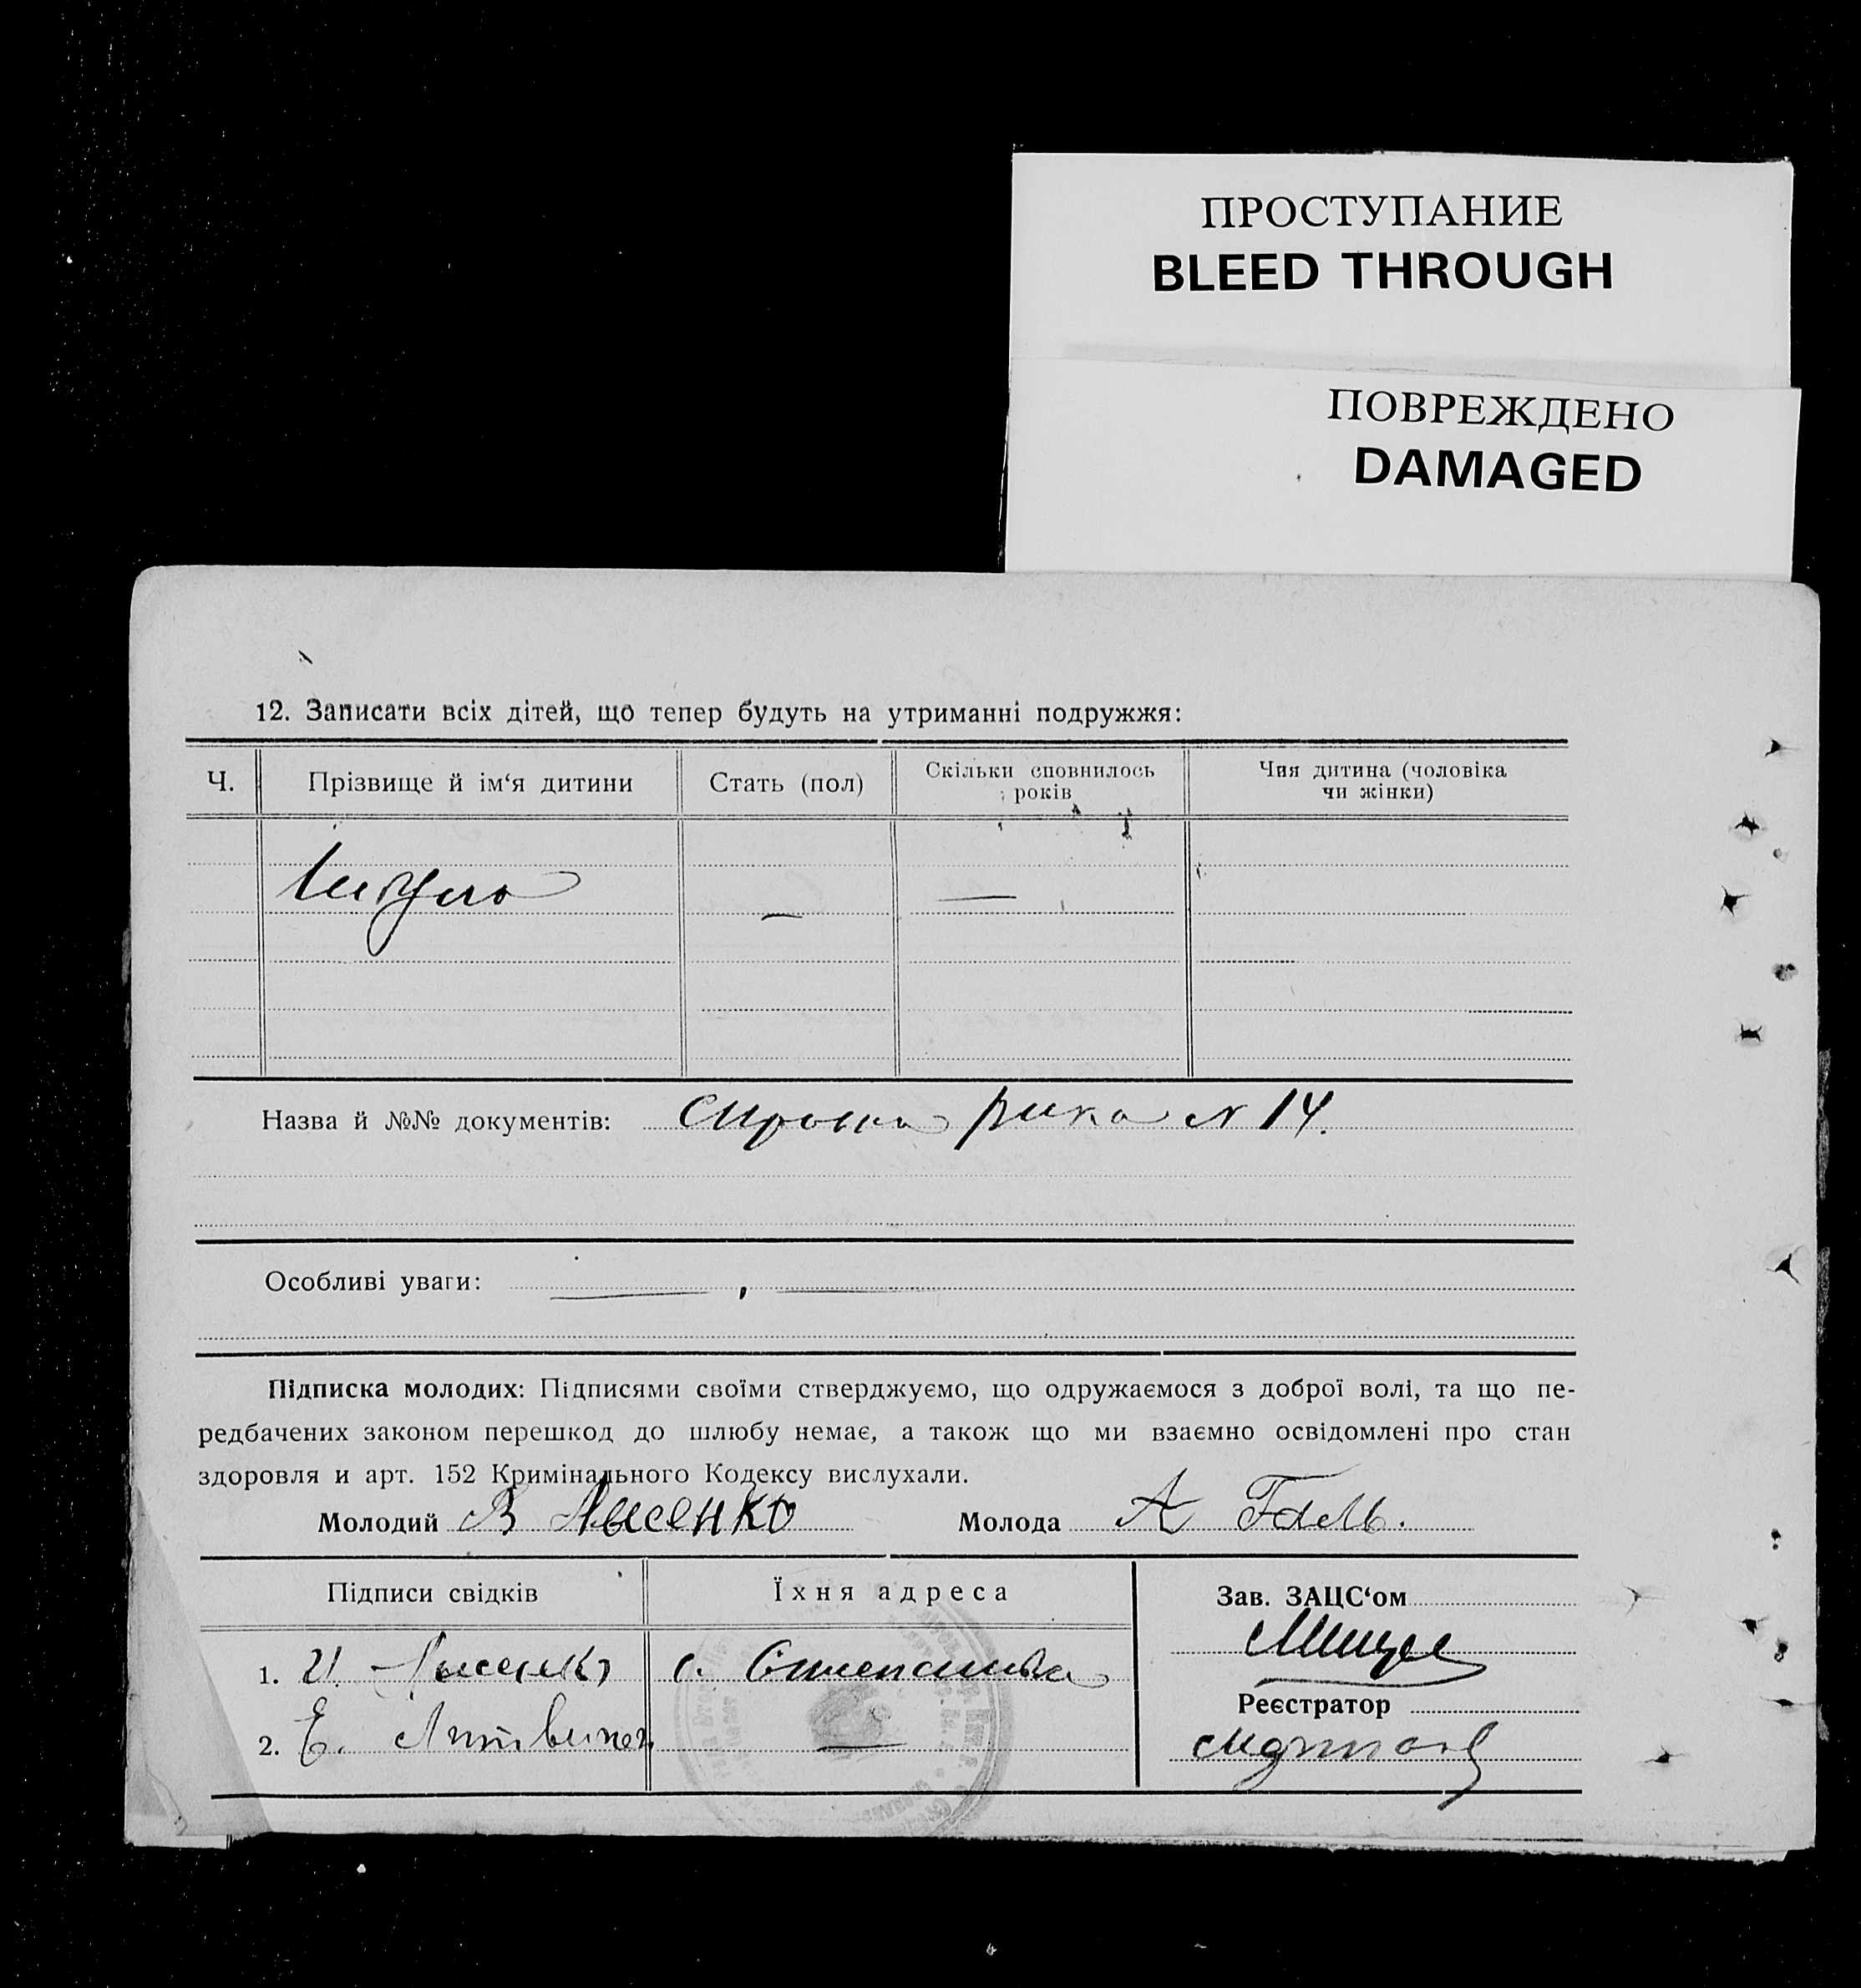 ПРОСТУПАНИЕ
BLEED THROUGH
ПОВРЕЖДЕНО
DAMAGED
12. Записати всіх дітей, що тепер будуть на утриманні подружжя:
Ч. Прізвище й ім‘я дитини Стать (пол) Скільки сповнилось років Чия дитина (чоловіка чи жінки)
— —
Назва й №№ документів: N 14.
Особливі уваги: — , —
Підписка молодих: Підписями своїми стверджуємо, що одружаємося з доброї волі, та що пе-
редбачених законом перешкод до шлюбу немає, а також що ми взаємно освідомлені про стан
здоровля и арт. 152 Кримінального Кодексу вислухали.
Молодий В Лысенко Молода А Галь.
Підписи свідків Їхня адреса Зав. ЗАЦС‘ом
1. И. Лисенко с. Степанівка
Реєстратор
2. Е. Литвинен —